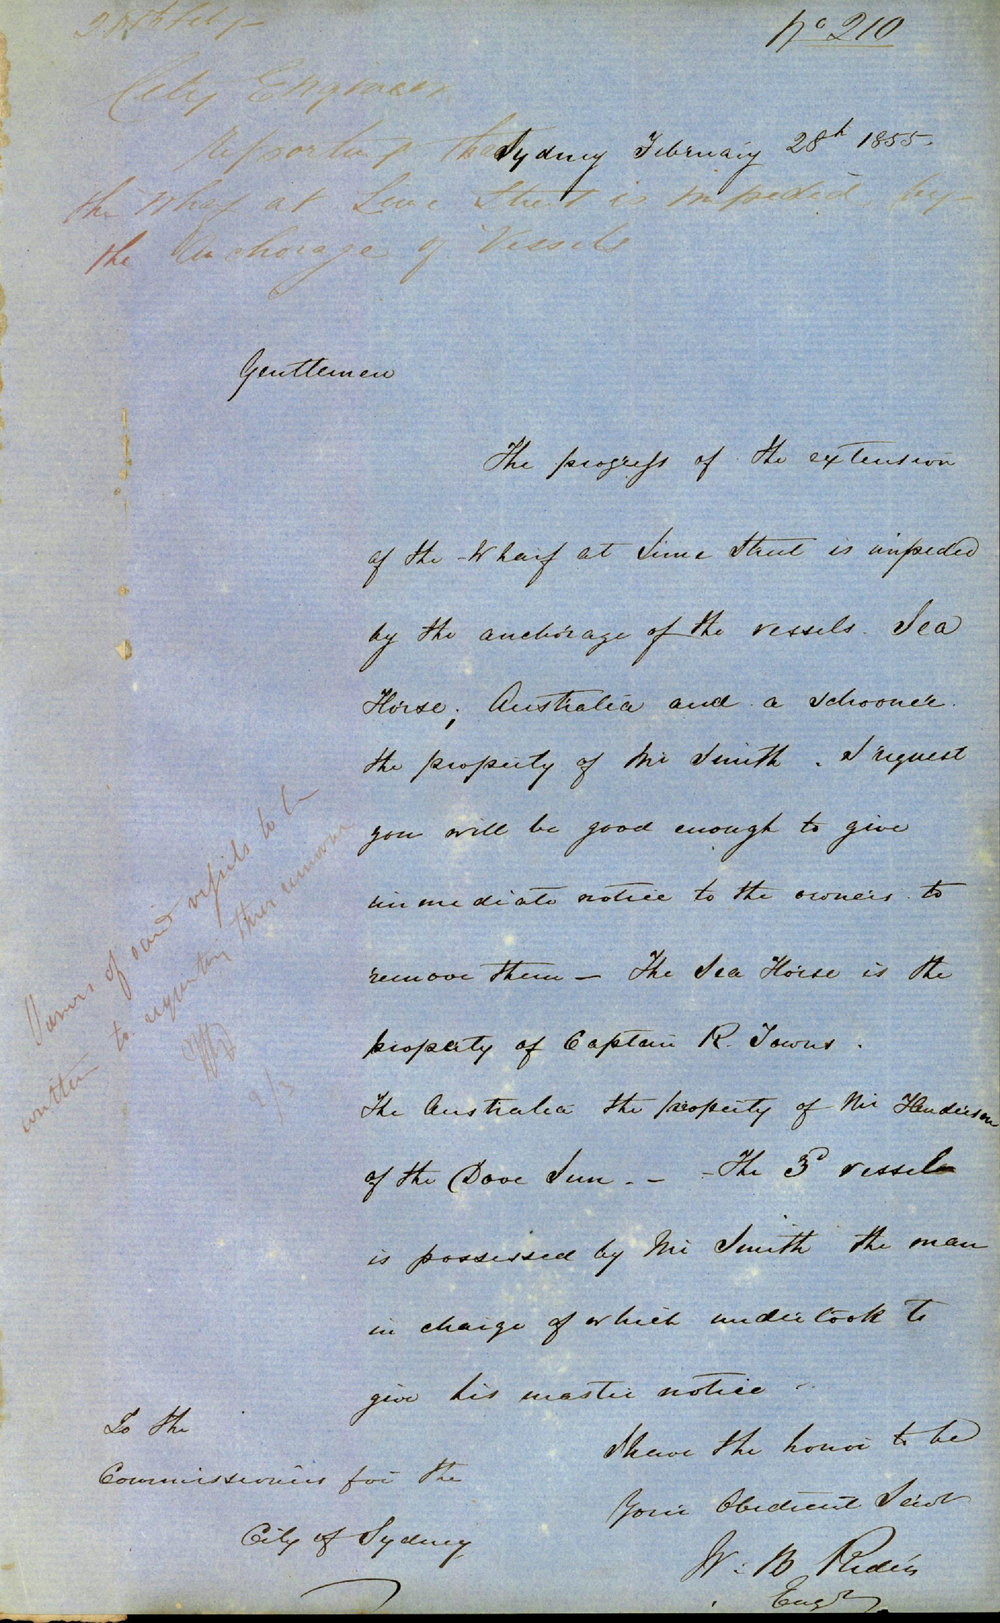 28th Feby
No 210
City Engineer
reporting that
Sydney February 28th 1855.
the Wharf at Lime Street is impeded by
the Anchorage of Vessels
Gentlemen
The progress of the extension
of the Wharf at Lime Street is impeded
by the anchorage of the vessels. Sea
Horse, Australia and a schooner
the property of Mr Smith. I request
you will be good enough to give
immediate notice to the owners to
remove them — The Sea Horse is the
property of Captain R. Towns.
The Australia the property of Mr Henderson
of the Dove Inn. — The 3d vessel
is possessed by Mr Smith the man
in charge of which undertook to
give his master notice.
I have the honor to be
Your Obedient Servt
W. B. Rider
Engr
To the
Commissioners for the
City of Sydney
Owners of said vessels to be
written to requesting their removal
2/3